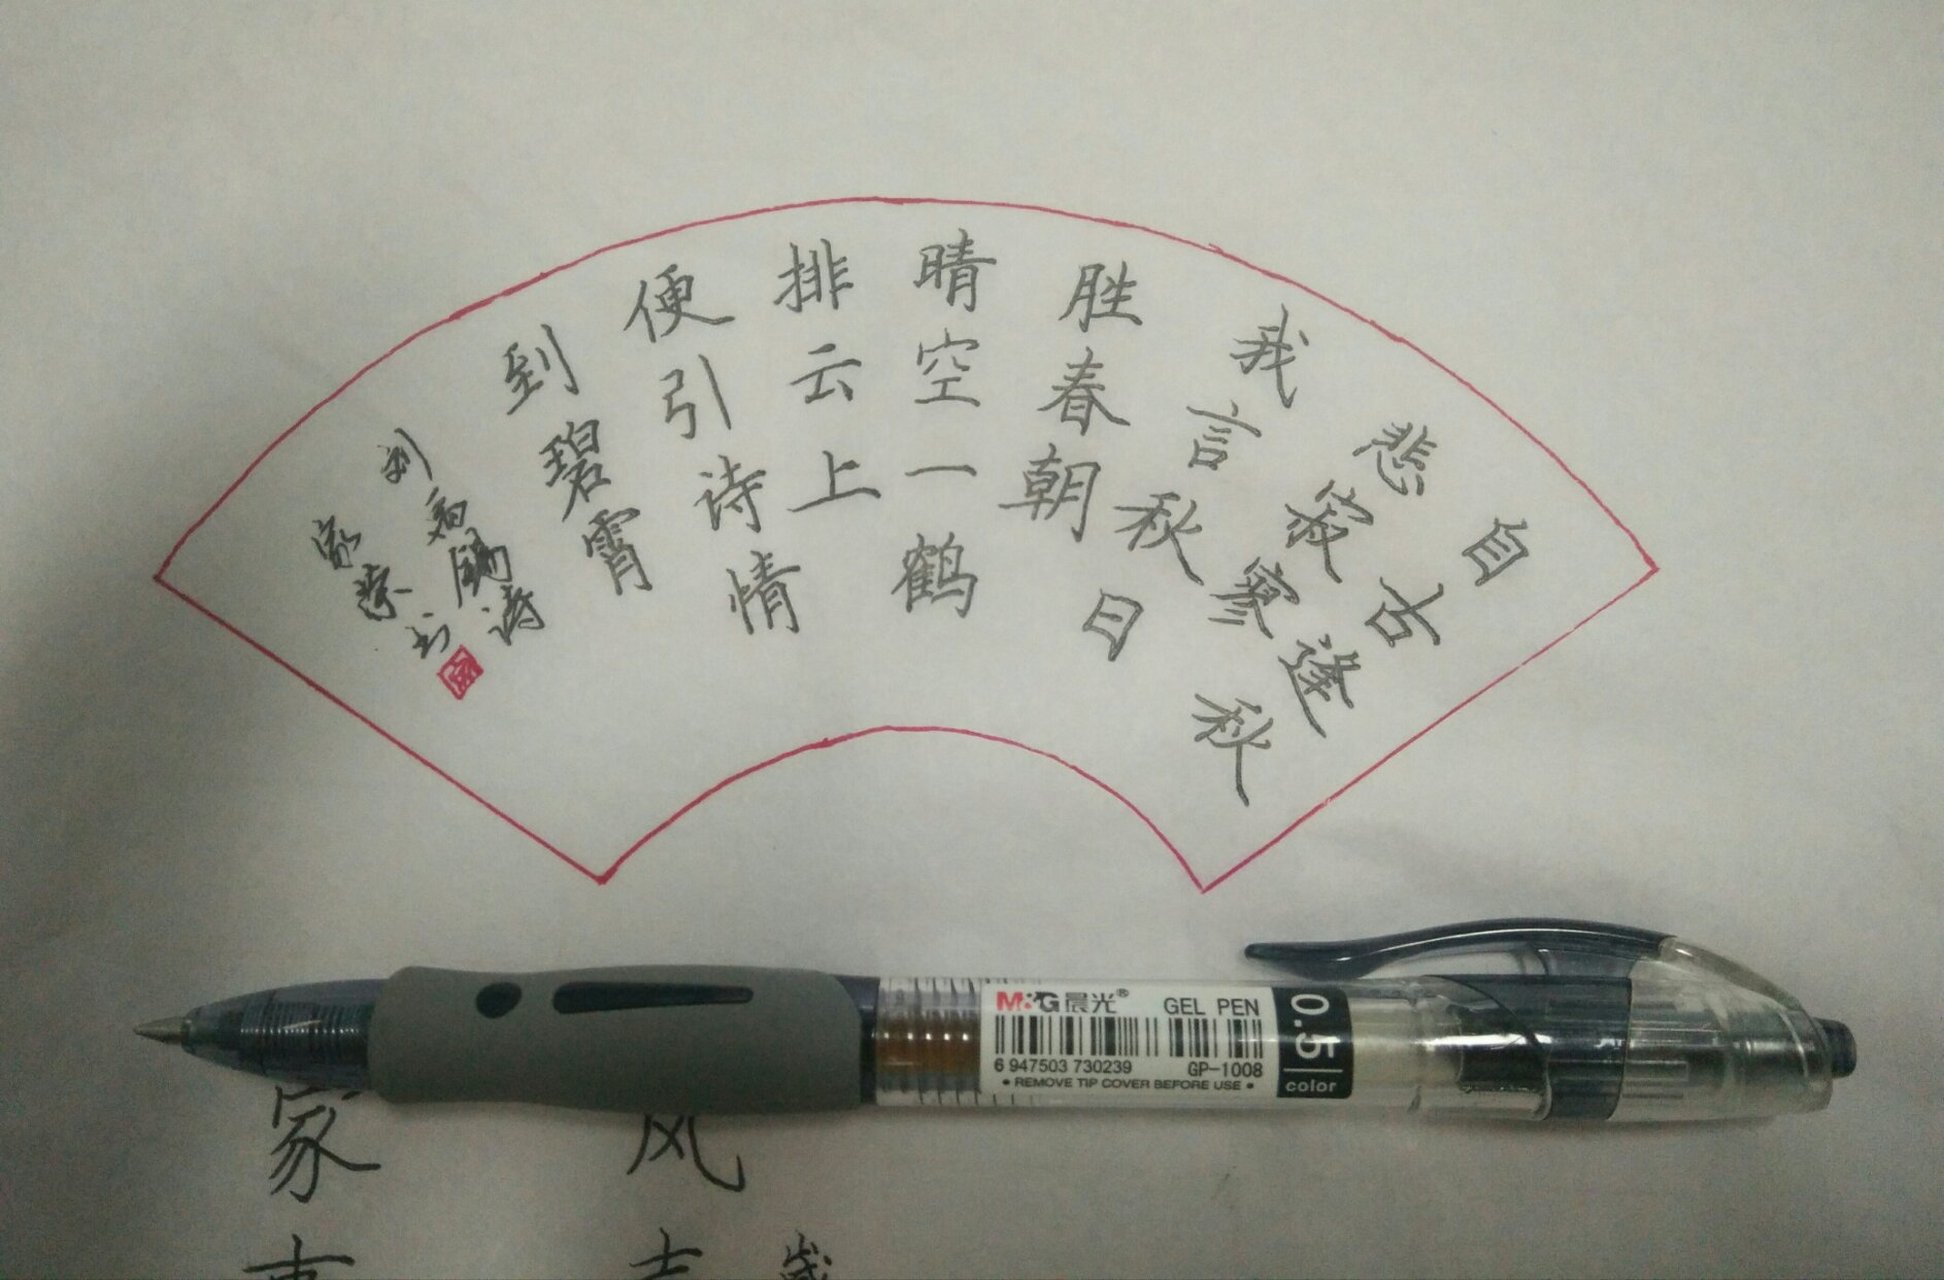 自古逢秋
悲寂寥
我言秋日
胜春朝
晴空一鹤
排云上
便引诗情
到碧霄
刘禹锡诗
家 书
M&G晨光® GEL PEN
0.5 color
6 947503 730239 GP-1008
• REMOVE TIP COVER BEFORE USE •
风
家